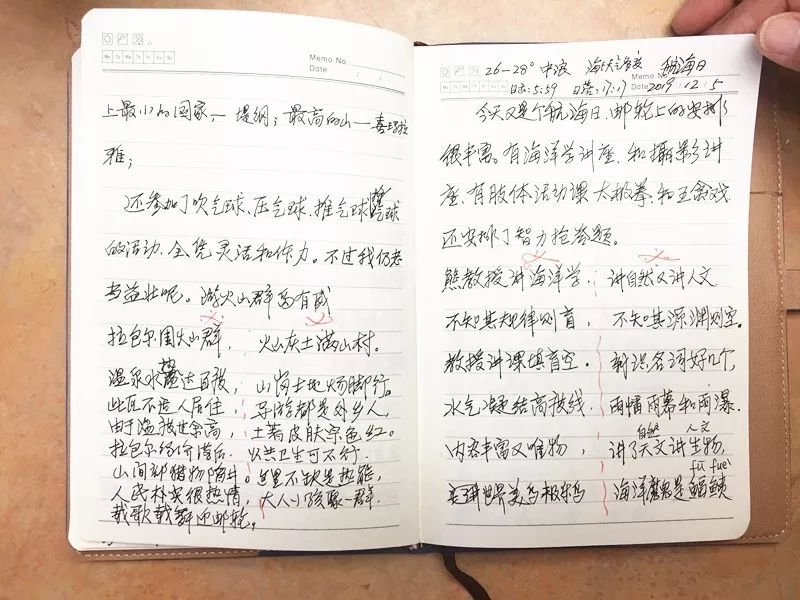 Memo No
Date / /
上最小的国家,— 提纲;最高的山——喜玛拉
雅;
还参加了吹气球、压气球、推气球
的活动,全凭灵活和体力。不过我仍老
当益壮呢。游火山群岛有感
拉包尔周火山群, 火山灰土满山村。
温泉水热达百张, 山岗土地烫脚行。
此瓦不适人居住, 导游都是外乡人,
由于温极世余高, 土著皮肤棕色红。
拉包尔经济滞后, 公共卫生可不行.
山间部猪物 。这里不缺是热能,
人民朴实很热情, 大人小孩聚一群.
载歌载舞迎邮轮,
26-28° 中浪 海上大讲堂 航海日
Memo No
日出:5:59 日落:17:17 Date 2019.12.5
今天又是个航海日,邮轮上的安排
很丰富。有海洋学讲座、和摄影讲
座、有肢体活动课太极拳、和五禽戏.
还安排了智力抢答题。
熊教授讲海洋学, 讲自然又讲人文.
不知其规律则盲, 不知其源渊则空。
教授讲课填盲空。 新识名词好几个,
水气凝结高拔线. 雨幡雨幕和雨瀑.
自然 人文
内容丰富又唯物, 讲了天文讲生物,
fù fuei
世界美鸟极乐鸟 海洋魔鬼是鲼